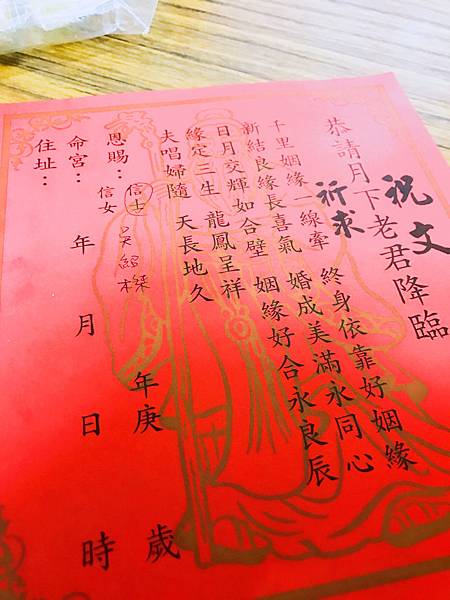 祝文
恭請月下老君降臨
祈求
千里姻緣一線牽 終身依靠好姻緣
新結良緣長喜氣 婚成美滿永同心
日月交輝如合壁 姻緣好合永良辰
緣定三生 龍鳳呈祥
夫唱婦隨 天長地久
恩賜：信士 吳紹 年庚 歲
信女
命宮： 年 月 日 時
住址：